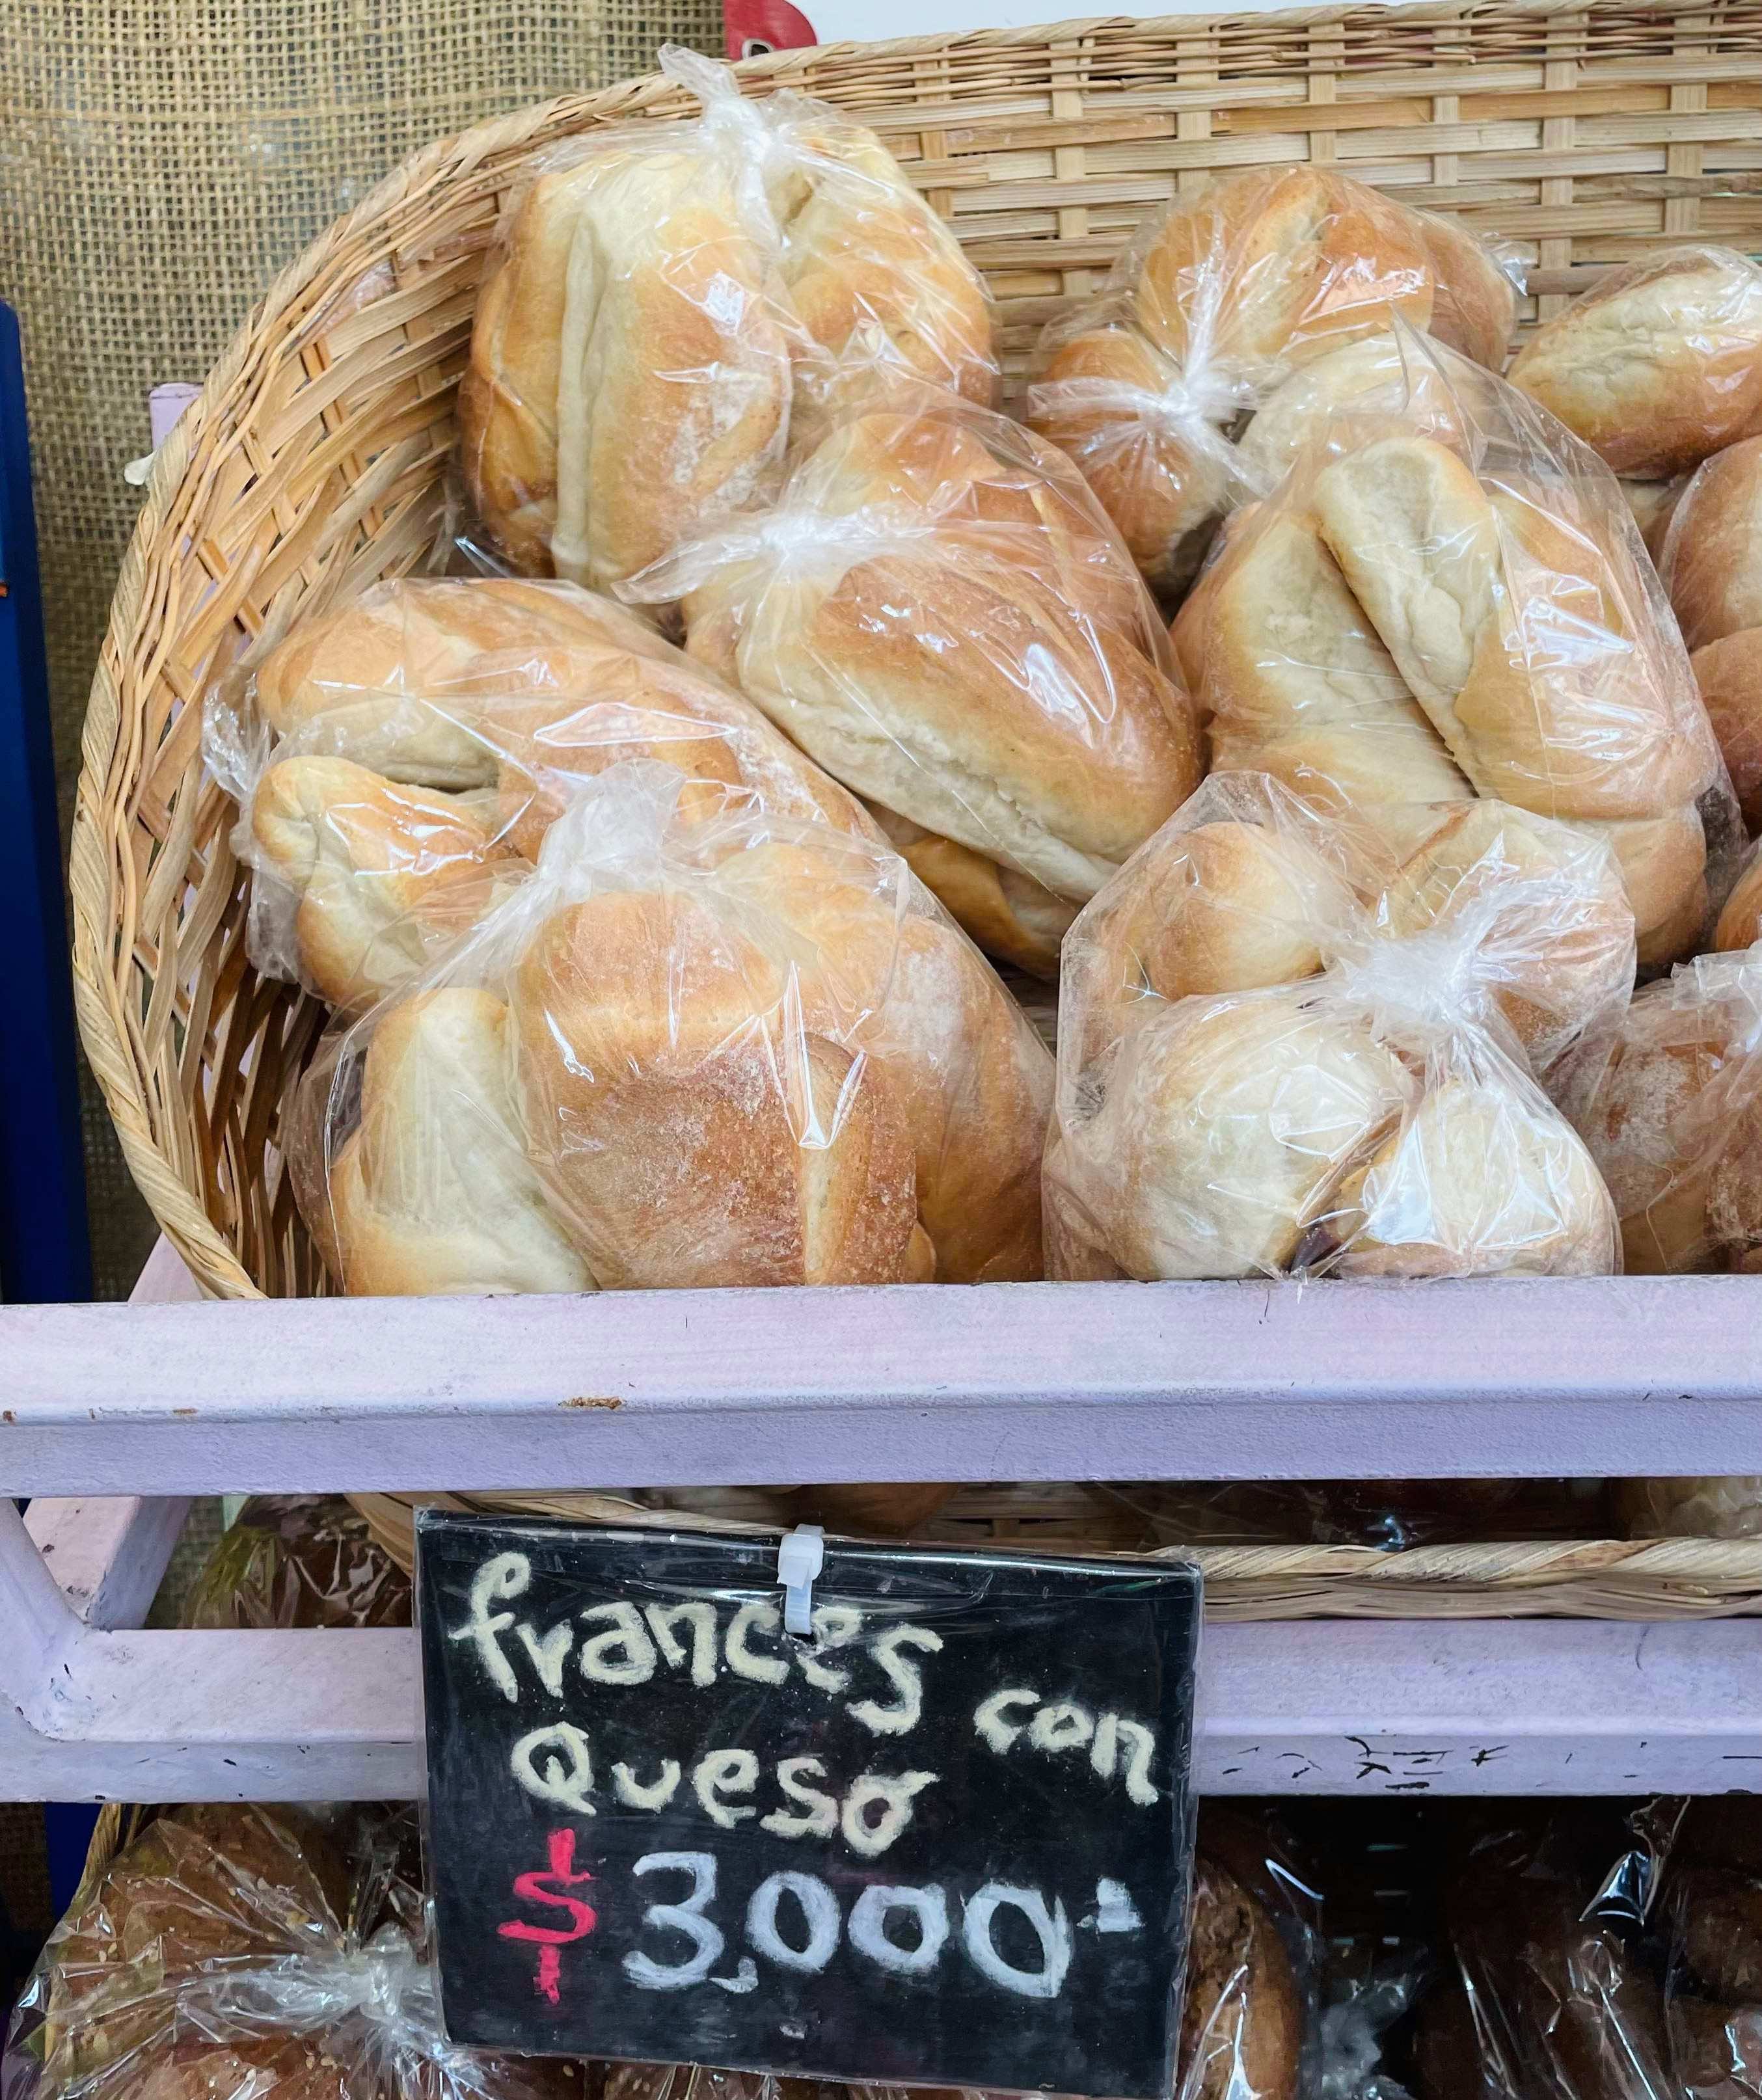 frances con
Queso
$3,000=